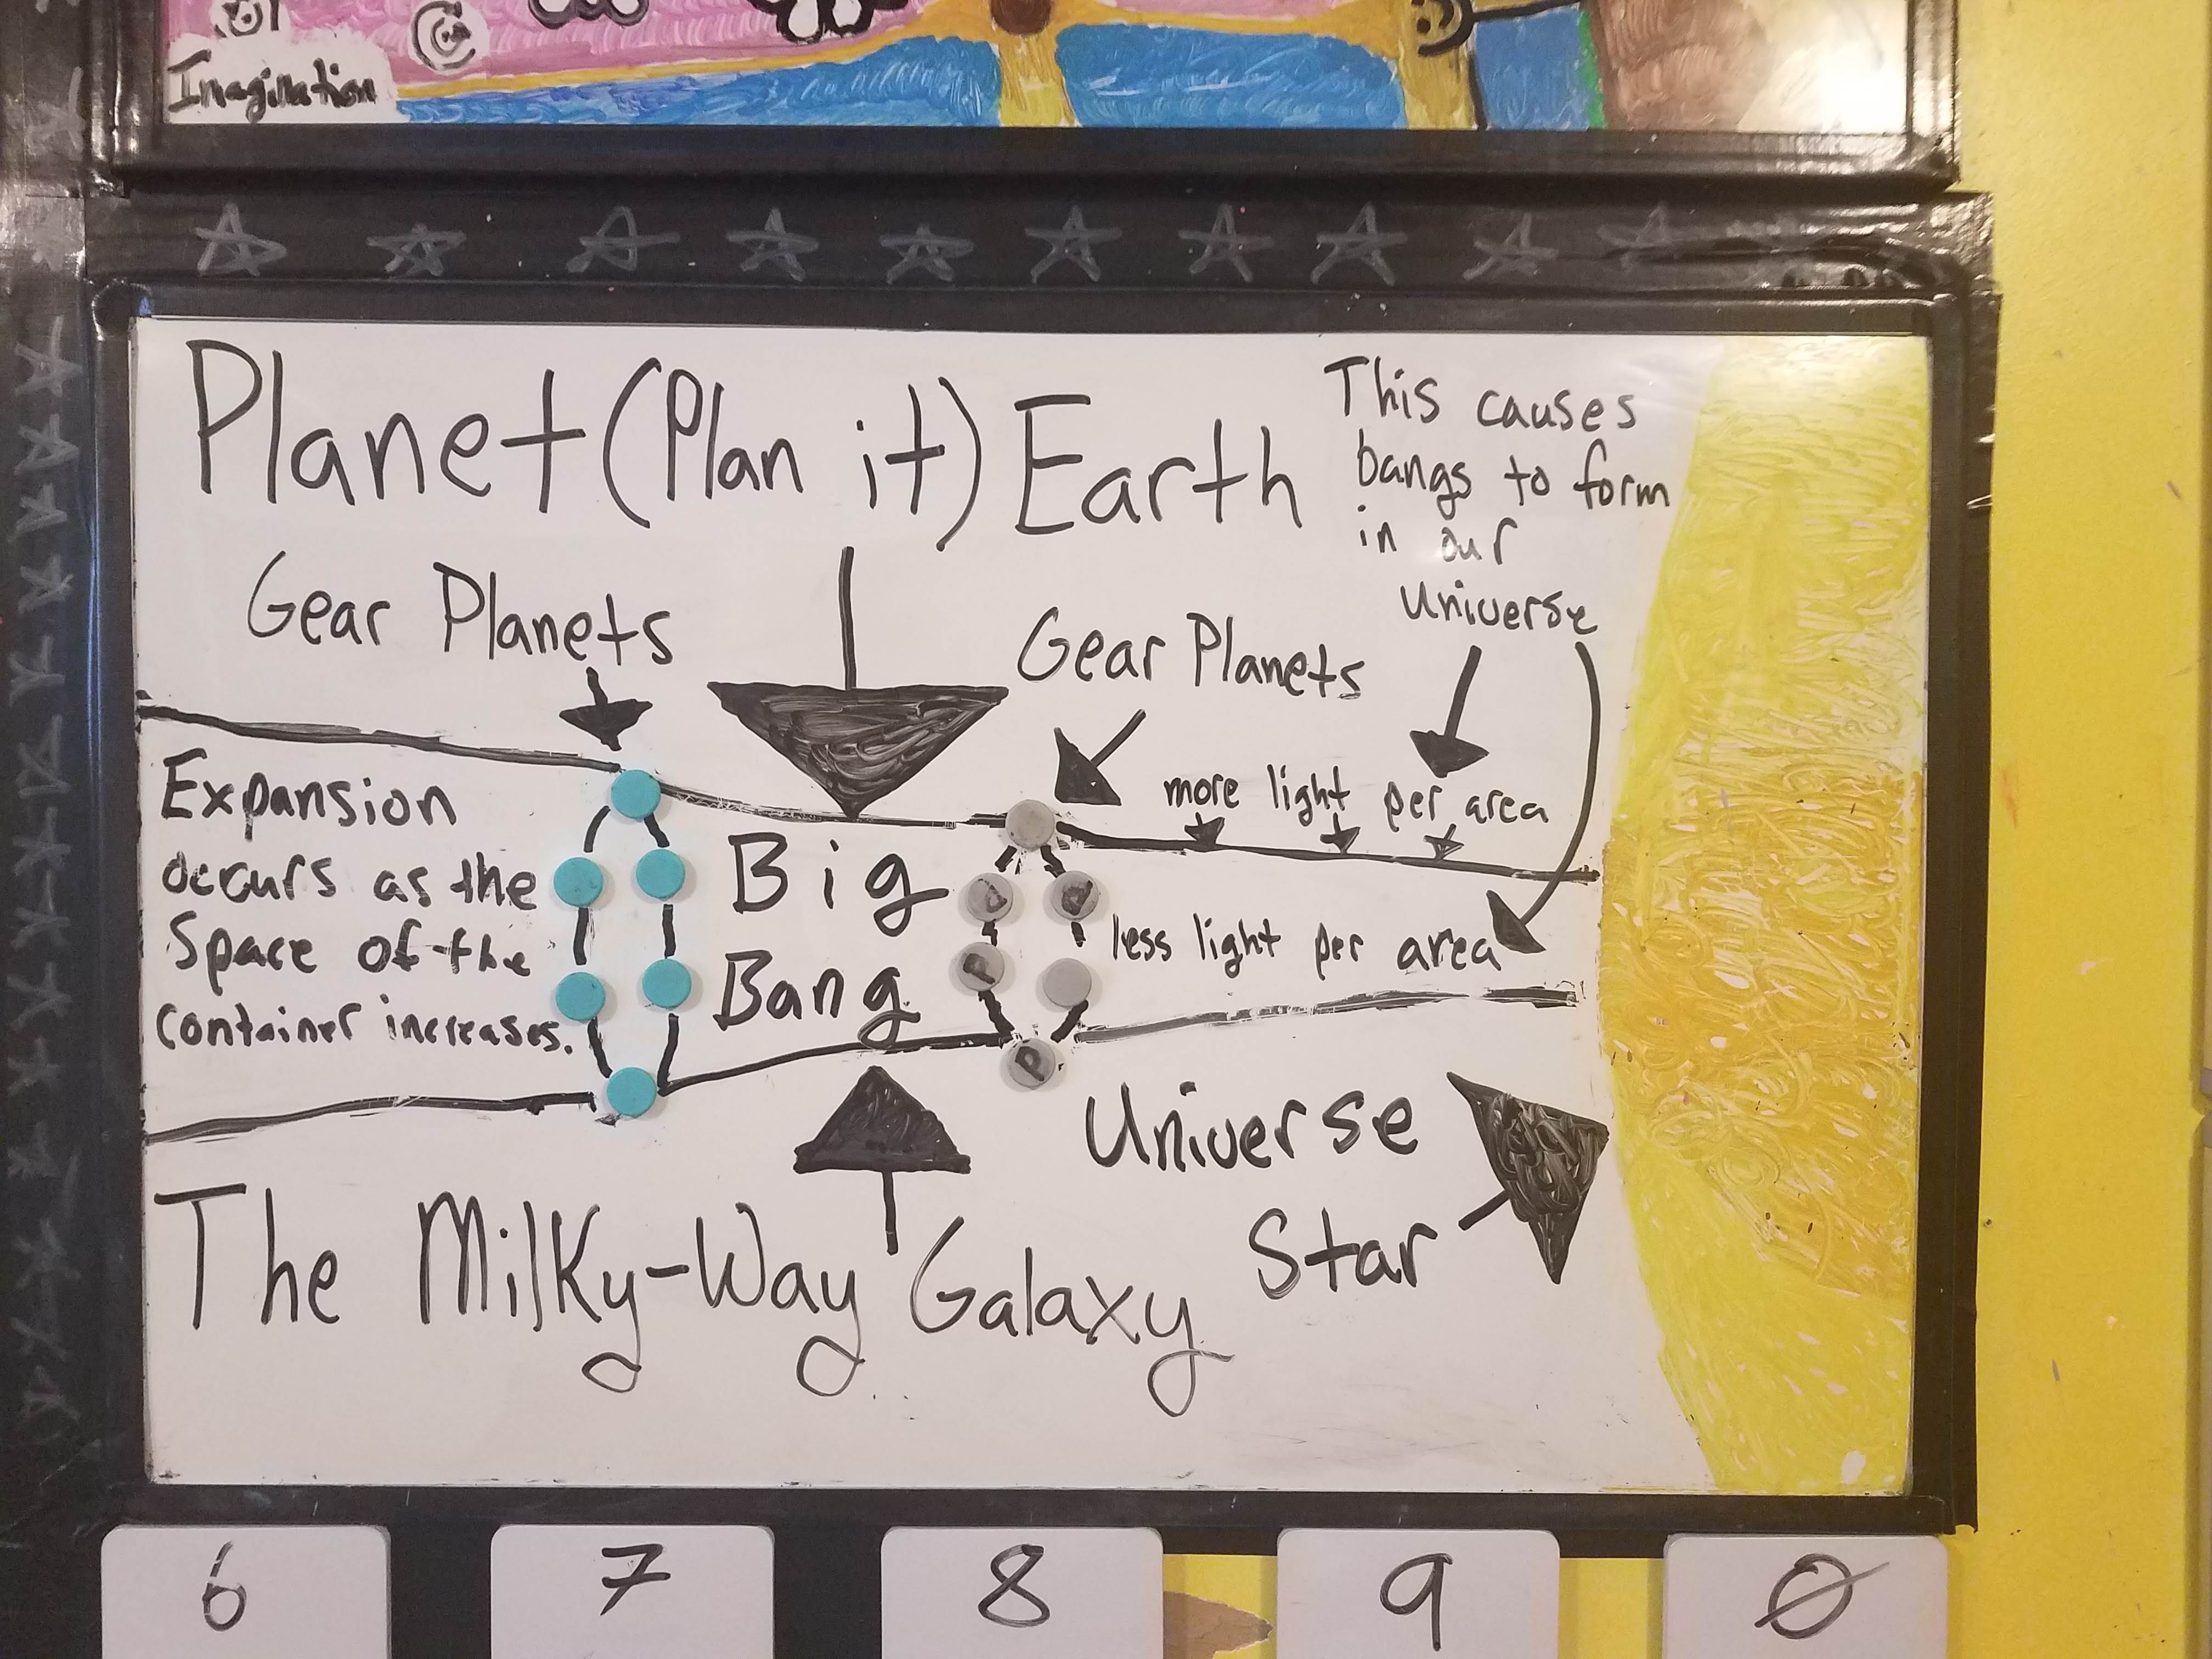 Imagination
Planet (Plan it) Earth
This causes
bangs to form
in our
universe
Gear Planets
Gear Planets
more light per area
Expansion
occurs as the
Space of the
container increases.
Big
Bang
less light per area
P
P
Universe
Star
The Milky-Way Galaxy
6
7
8
9
0